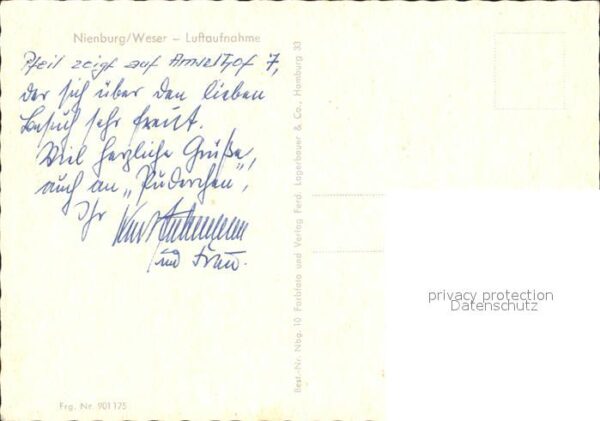 Nienburg/Weser – Luftaufnahme
Pfeil zeigt auf 7,
der sich über den lieben
Besuch sehr freut.
Viel herzliche Grüße,
auch an „Puderchen",
Ihr Kurt
und Frau.
Frg. Nr. 901175
Best.-Nr. Nbg. 10 Farbfoto und Verlag Ferd. Lagerbauer & Co., Hamburg 33
privacy protection
Datenschutz